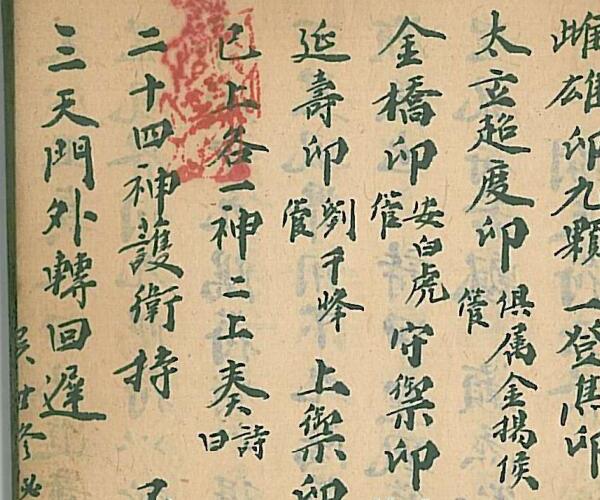 雌雄印九顆一登
太立超度印俱属金揚侯管
金橋印安白虎管守禦印
延壽印劉千峰管上禦印
已上各一神二上奏詩曰
二十四神護衛持
三天門外轉回遲